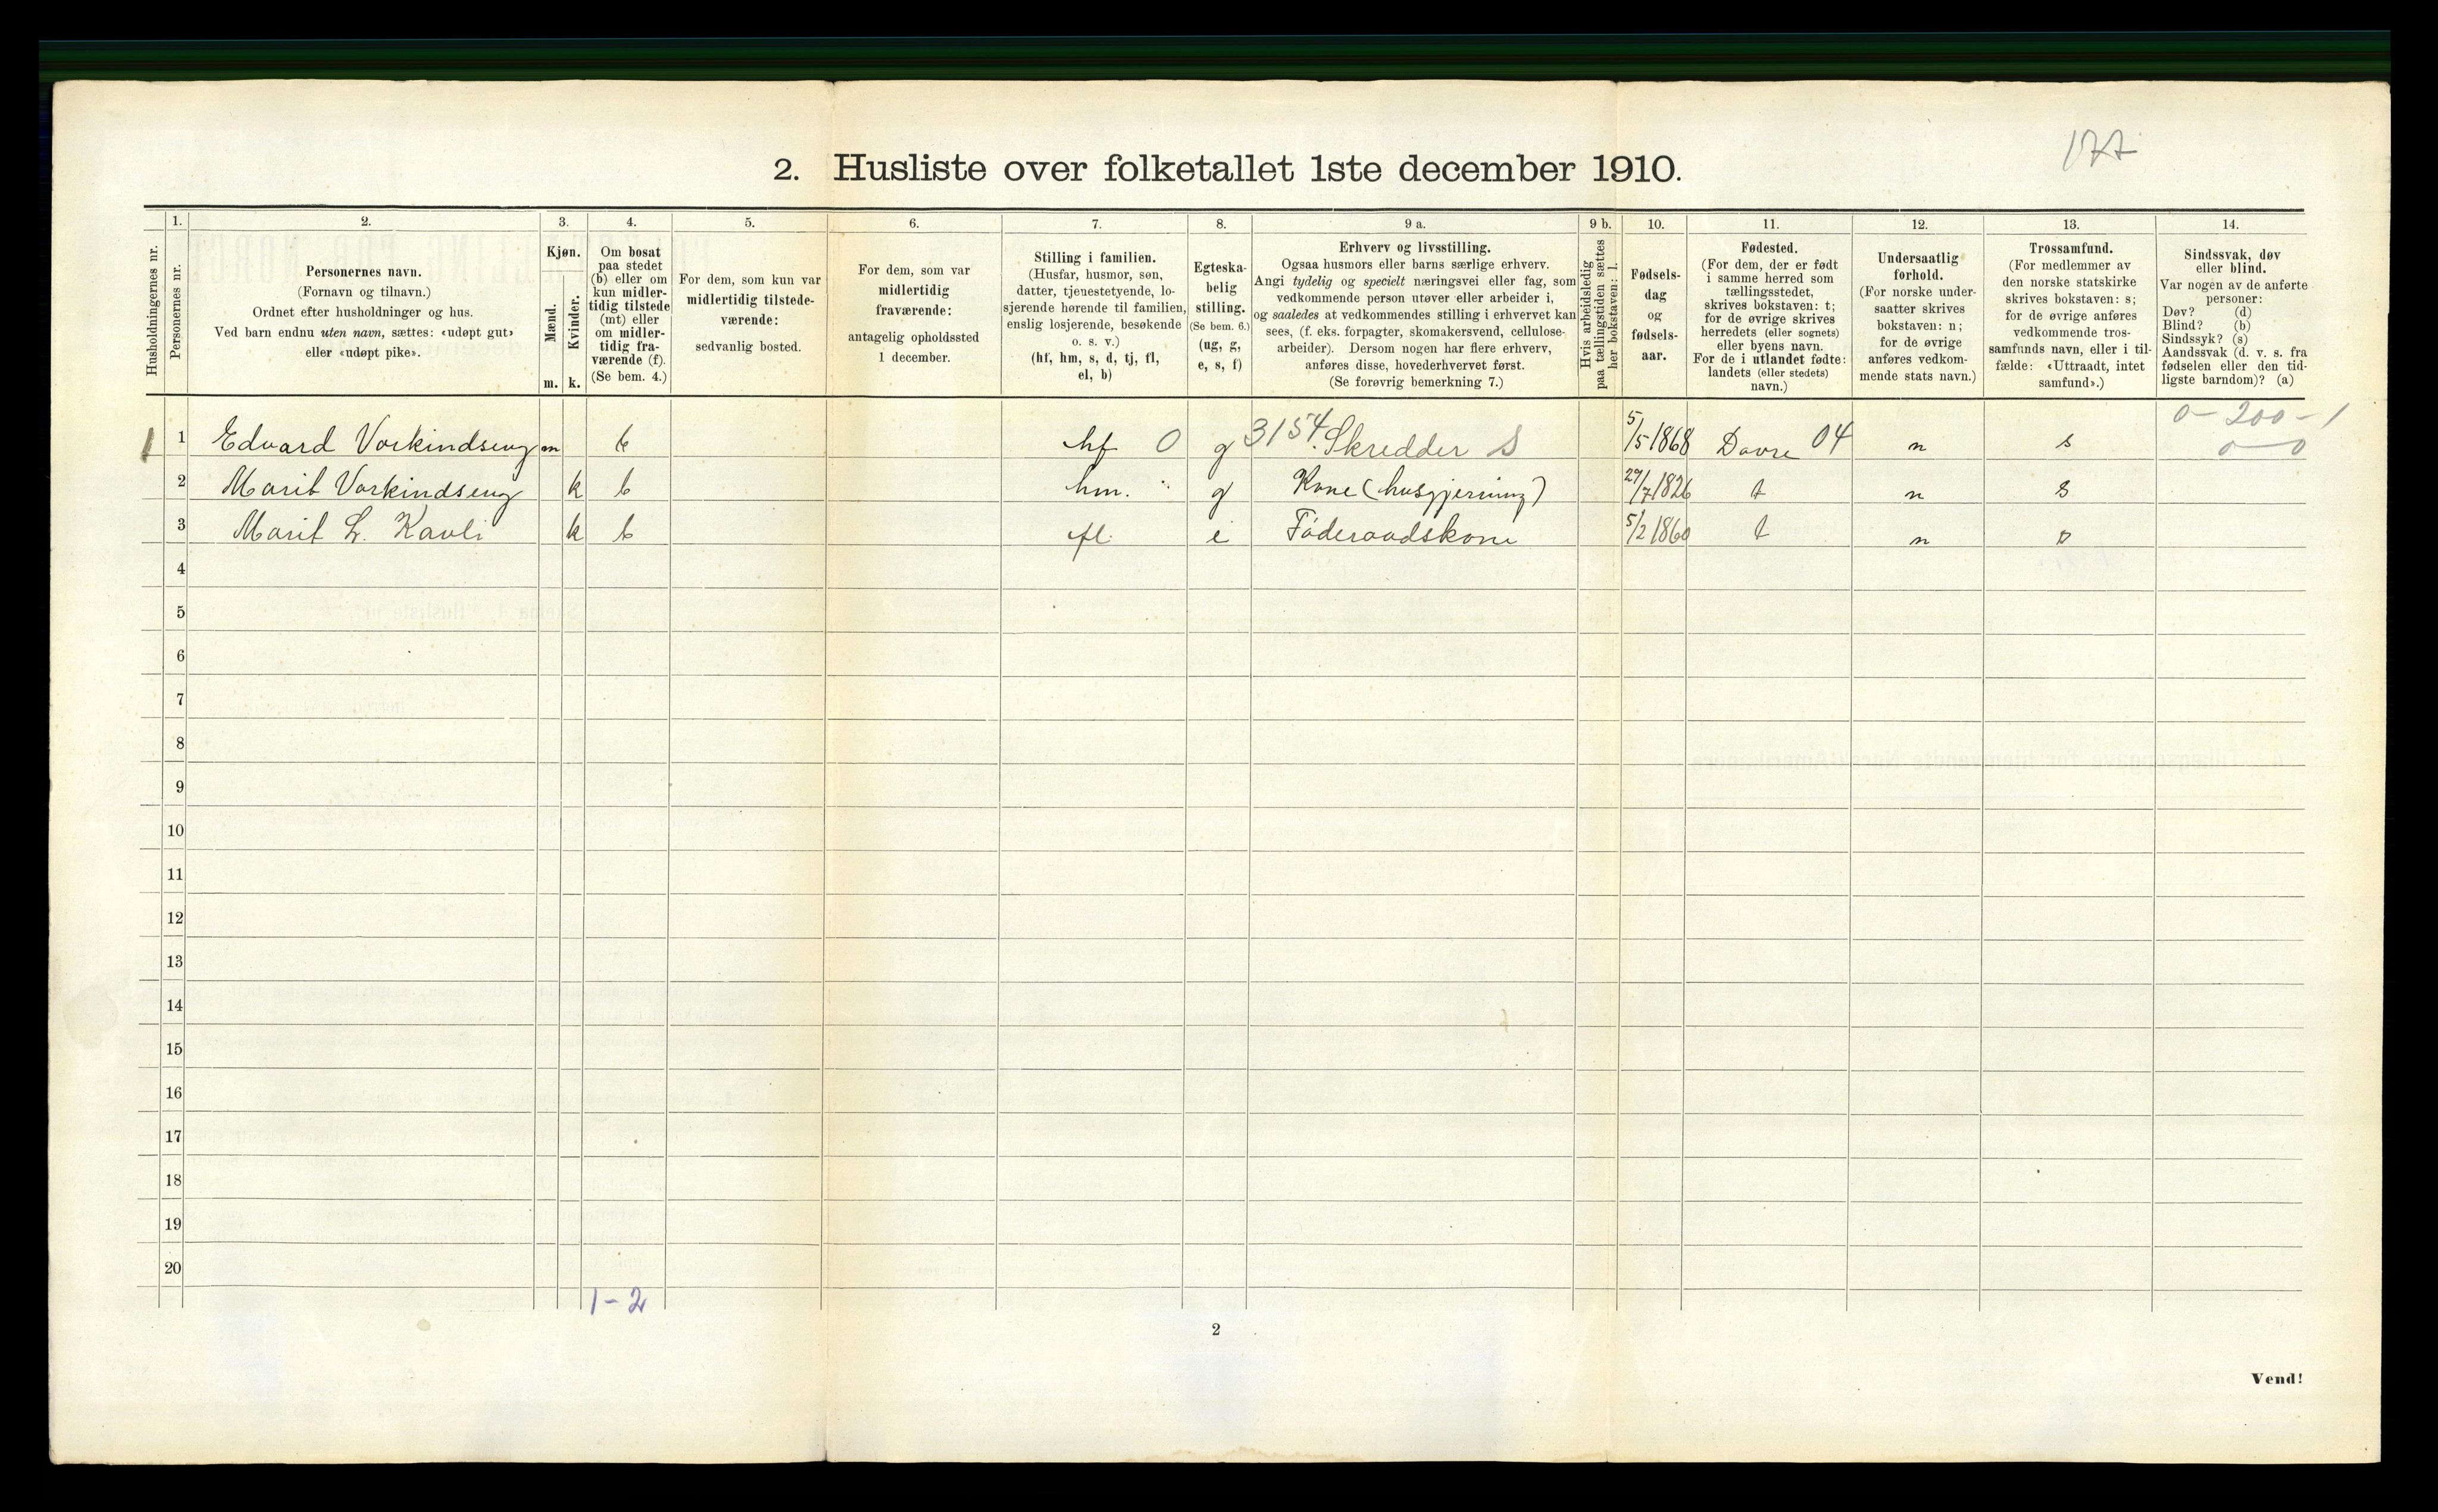 177
2. Husliste over folketallet 1ste december 1910.
Husholdningernes nr.
1.
Personernes nr.
2.
Personernes navn.
(Fornavn og tilnavn.)
Ordnet efter husholdninger og hus.
Ved barn endnu uten navn, sættes: «udøpt gut»
eller «udøpt pike».
3.
Kjøn.
Mænd.
Kvinder.
m. k.
4.
Om bosat
paa stedet
(b) eller om
kun midler-
tidig tilstede
(mt) eller
om midler-
tidig fra-
værende (f).
(Se bem. 4.)
5.
For dem, som kun var
midlertidig tilstede-
værende:
sedvanlig bosted.
6.
For dem, som var
midlertidig
fraværende:
antagelig opholdssted
1 december.
7.
Stilling i familien.
(Husfar, husmor, søn,
datter, tjenestetyende, lo-
sjerende hørende til familien,
enslig losjerende, besøkende
o. s. v.)
(hf, hm, s, d, tj, fl,
el, b)
8.
Egteska-
belig
stilling.
(Se bem. 6.)
(ug, g,
e, s, f)
9 a.
Erhverv og livsstilling.
Ogsaa husmors eller barns særlige erhverv.
Angi tydelig og specielt næringsvei eller fag, som
vedkommende person utøver eller arbeider i,
og saaledes at vedkommendes stilling i erhvervet kan
sees, (f. eks. forpagter, skomakersvend, cellulose-
arbeider). Dersom nogen har flere erhverv,
anføres disse, hovederhvervet først.
(Se forøvrig bemerkning 7.)
9 b.
Hvis arbeidsledig
paa tællingstiden sættes
her bokstaven: l.
10.
Fødsels-
dag
og
fødsels-
aar.
11.
Fødested.
(For dem, der er født
i samme herred som
tællingsstedet,
skrives bokstaven: t;
for de øvrige skrives
herredets (eller sognets)
eller byens navn.
For de i utlandet fødte:
landets (eller stedets)
navn.)
12.
Undersaatlig
forhold.
(For norske under-
saatter skrives
bokstaven: n;
for de øvrige
anføres vedkom-
mende stats navn.)
13.
Trossamfund.
(For medlemmer av
den norske statskirke
skrives bokstaven: s;
for de øvrige anføres
vedkommende tros-
samfunds navn, eller i til-
fælde: «Uttraadt, intet
samfund».)
14.
Sindssvak, døv
eller blind.
Var nogen av de anførte
personer:
Døv? (d)
Blind? (b)
Sindssyk? (s)
Aandssvak (d. v. s. fra
fødselen eller den tid-
ligste barndom)? (a)
0-200-1
1 1 Edvard Vorkindseng m b hf 0 g 3154. Skredder S 5/5 1868 Dovre 04 n s 0-0
2 Marit Vorkindseng k b hm. g Kone (husgjerning) 29/7 1826 t n s
3 Marit L. Kavli k b fl. e Föderaadskone 5/2 1860 t n s
4
5
6
7
8
9
10
11
12
13
14
15
16
17
18
19
20
1-2
2
Vend!